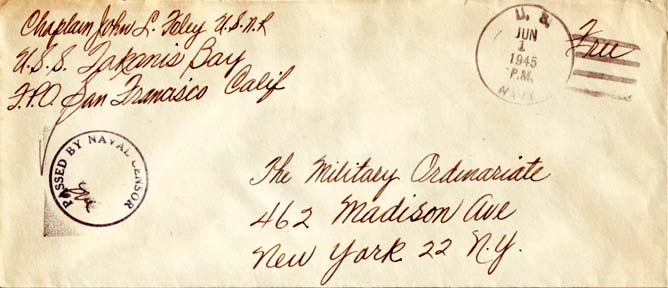 Chaplain John L. Foley U.S.N.R
U.S.S. Takanis Bay
F.P.O. San Francisco Calif
U. S.
JUN
1
1945
P.M.
NAVY
Free
PASSED BY NAVAL CENSOR
The Military Ordinariate
462 Madison Ave
New York 22 N.Y.